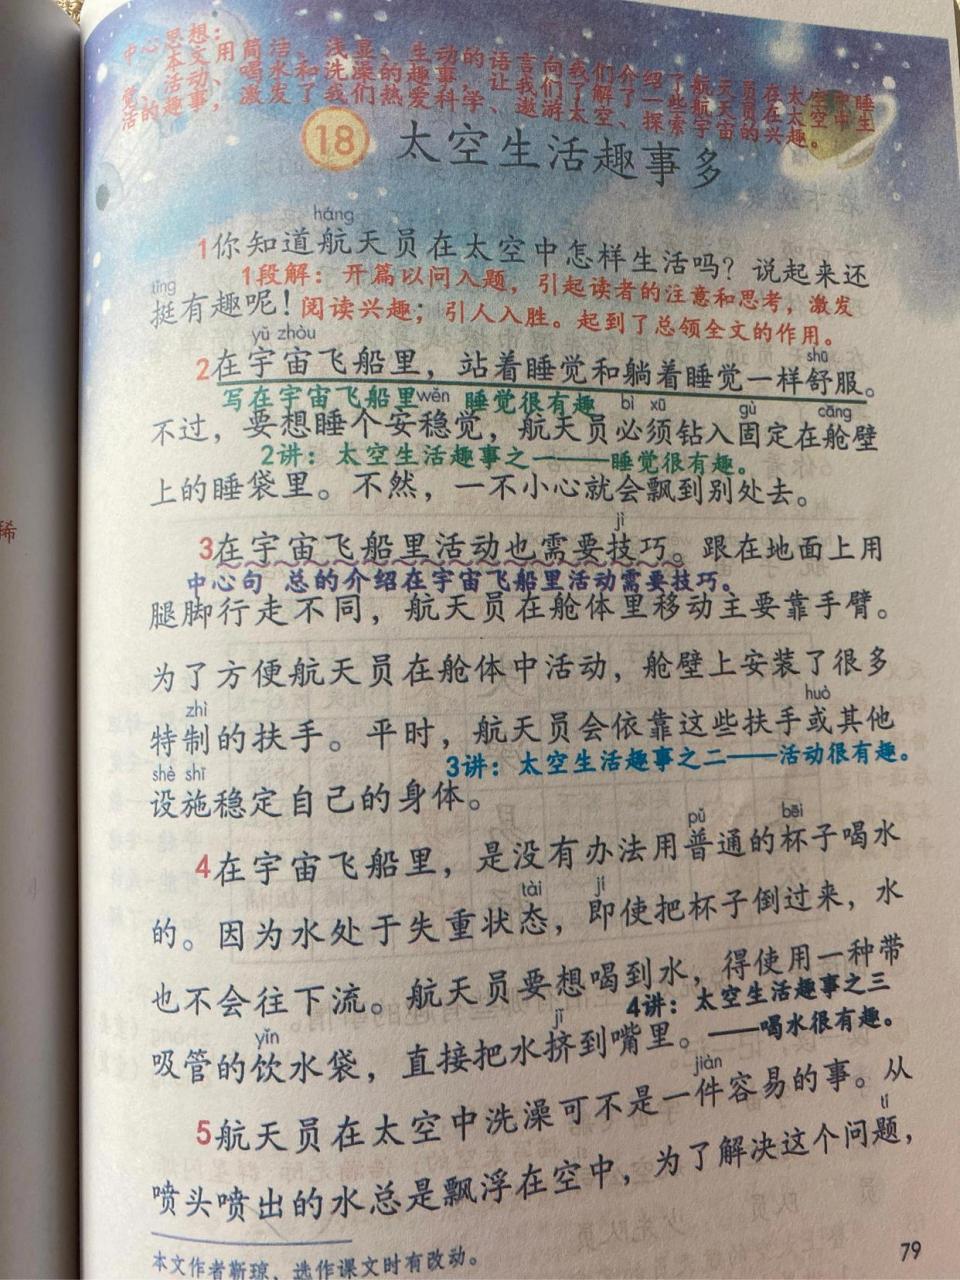 中心思想：
本文用简洁、浅显、生动的语言向我们介绍了航天员在太空中睡
觉、活动、喝水和洗澡的趣事，让我们了解了一些航天员在太空中生
活的趣事，激发了我们热爱科学、遨游太空、探索宇宙的兴趣。
18 太空生活趣事多
háng
1你知道航天员在太空中怎样生活吗？说起来还
1段解：开篇以问入题，引起读者的注意和思考，激发
tǐng
挺有趣呢！阅读兴趣；引人入胜。起到了总领全文的作用。
yǔ zhòu shū
2在宇宙飞船里，站着睡觉和躺着睡觉一样舒服。
写在宇宙飞船里 睡觉很有趣
wěn bì xū gù cāng
不过，要想睡个安稳觉，航天员必须钻入固定在舱壁
2讲：太空生活趣事之一——睡觉很有趣。
上的睡袋里。不然，一不小心就会飘到别处去。
jì
3在宇宙飞船里活动也需要技巧。跟在地面上用
中心句 总的介绍在宇宙飞船里活动需要技巧。
腿脚行走不同，航天员在舱体里移动主要靠手臂。
为了方便航天员在舱体中活动，舱壁上安装了很多
zhì huò
特制的扶手。平时，航天员会依靠这些扶手或其他
3讲：太空生活趣事之二——活动很有趣。
shè shī
设施稳定自己的身体。
pǔ bēi
4在宇宙飞船里，是没有办法用普通的杯子喝水
tài jí
的。因为水处于失重状态，即使把杯子倒过来，水
也不会往下流。航天员要想喝到水，得使用一种带
4讲：太空生活趣事之三
——喝水很有趣。
yǐn jǐ
吸管的饮水袋，直接把水挤到嘴里。
jiàn
5航天员在太空中洗澡可不是一件容易的事。从
tí
喷头喷出的水总是飘浮在空中，为了解决这个问题，
本文作者靳琼，选作课文时有改动。
79
稀